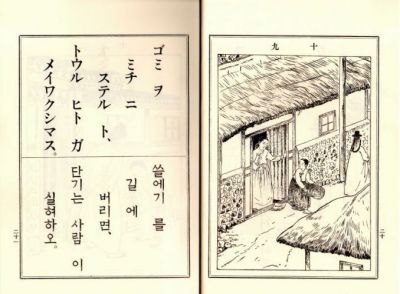 十九
二十
ゴミ ヲ
ミチ ニ
ステル ト、
トウル ヒト ガ
メイワクシマス。
쓸에기 를
길 에
버리면,
단기는 사람 이
실혀하오。
二十一